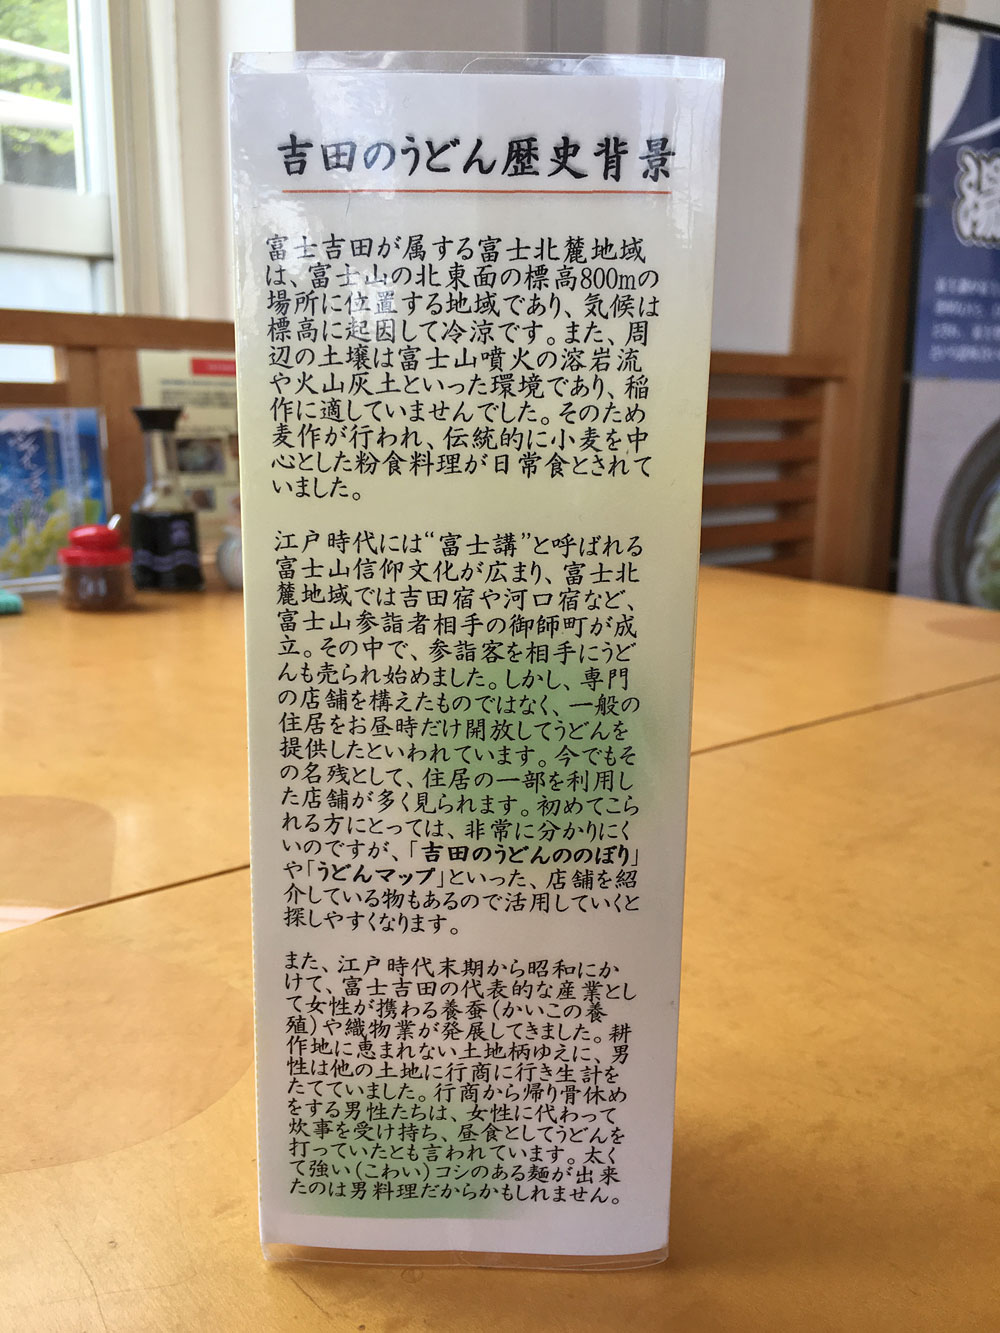 吉田のうどん歴史背景
富士吉田が属する富士北麓地域
は、富士山の北東面の標高800mの
場所に位置する地域であり、気候は
標高に起因して冷涼です。また、周
辺の土壌は富士山噴火の溶岩流
や火山灰土といった環境であり、稲
作に適していませんでした。そのため
麦作が行われ、伝統的に小麦を中
心とした粉食料理が日常食とされて
いました。
江戸時代には“富士講”と呼ばれる
富士山信仰文化が広まり、富士北
麓地域では吉田宿や河口宿など、
富士山参詣者相手の御師町が成
立。その中で、参詣客を相手にうど
んも売られ始めました。しかし、専門
の店舗を構えたものではなく、一般の
住居をお昼時だけ開放してうどんを
提供したといわれています。今でもそ
の名残として、住居の一部を利用し
た店舗が多く見られます。初めてこら
れる方にとっては、非常に分かりにく
いのですが、「吉田のうどんののぼり」
や「うどんマップ」といった、店舗を紹
介している物もあるので活用していくと
探しやすくなります。
また、江戸時代末期から昭和にか
けて、富士吉田の代表的な産業とし
て女性が携わる養蚕（かいこの養
殖）や織物業が発展してきました。耕
作地に恵まれない土地柄ゆえに、男
性は他の土地に行商に行き生計を
たてていました。行商から帰り骨休め
をする男性たちは、女性に代わって
炊事を受け持ち、昼食としてうどんを
打っていたとも言われています。太く
て強い（こわい）コシのある麺が出来
たのは男料理だからかもしれません。